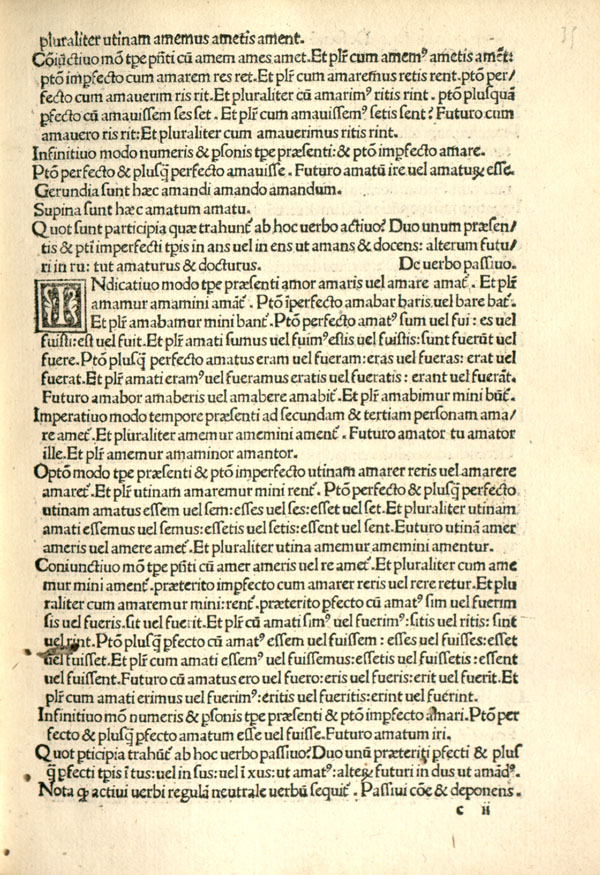 35
pluraliter utinam amemus ametis ament.
Cõiũctiuo mõ tpe pñti cũ amem ames amet.Et plr̃ cum amemꝰ ametis amẽt:
ptõ impfecto cum amarem res ret. Et plr̃ cum amaremus retis rent.ptõ per/
fecto cum amauerim ris rit.Et pluraliter cũ amarimꝰ ritis rint . ptõ plusquã
pfecto cũ amauissem ses set . Et plr̃ cum amauissemꝰ setis sent? Futuro cum
amauero ris rit:Et pluraliter cum amauerimus ritis rint.
Infinitiuo modo numeris & psonis tpe præsenti:& ptõ impfecto amare.
Ptõ perfecto & plusq̃ perfecto amauisse. Futuro amatũ ire uel amatuꝝ esse.
Gerundia sunt hæc amandi amando amandum.
Supina sunt hæc amatum amatu.
Quot sunt participia quæ trahunt̃ ab hoc uerbo actiuo? Duo unum præsen/
tis & pti imperfecti tpis in ans uel in ens ut amans & docens: alterum futu/
ri in ru: tut amaturus & docturus. De uerbo passiuo.
INdicatiuo modo tpe præsenti amor amaris uel amare amat̃. Et plr̃
amamur amamini amãt̃. Ptõ ĩperfecto amabar baris uel bare bat̃.
Et plr̃ amabamur mini bant̃. Ptõ perfecto amatꝰ sum uel fui : es uel
fuisti:est uel fuit. Et plr̃ amati sumus uel fuimꝰ estis uel fuistis: sunt fuerũt uel
fuere. Ptõ plusq̃ perfecto amatus eram uel fueram: eras uel fueras: erat uel
fuerat.Et plr̃ amati eramꝰ uel fueramus eratis uel fueratis : erant uel fuerãt.
Futuro amabor amaberis uel amabere amabit̃. Et plr̃ amabimur mini bũt̃.
Imperatiuo modo tempore præsenti ad secundam & tertiam personam ama/
re amet̃ .Et pluraliter amemur amemini ament̃ . Futuro amator tu amator
ille.Et plr̃ amemur amaminor amantor.
Optõ modo tpe præsenti & ptõ imperfecto utinam amarer reris uel amarere
amaret̃. Et plr̃ utinam amaremur mini rent̃. Ptõ perfecto & plusq̃ perfecto
utinam amatus essem uel sem: esses uel ses: esset uel set. Et pluraliter utinam
amati essemus uel semus: essetis uel setis: essent uel sent. Euturo utinã amer
ameris uel amere amet̃. Et pluraliter utina amemur amemini amentur.
Coniunctiuo mõ tpe pñti cũ amer ameris uel re amet̃. Et pluraliter cum ame
mur mini ament̃. præterito impfecto cum amarer reris uel rere retur. Et plu
raliter cum amaremur mini: rent̃. præterito pfecto cũ amatꝰ sim uel fuerim
sis uel fueris. sit uel fuerit. Et plr̃ cũ amati simꝰ uel fuerimꝰ: sitis uel ritis: sint
uel rint. Ptõ plusq̃ pfecto cũ amatꝰ essem uel fuissem : esses uel fuisses: esset
uel fuisset. Et plr̃ cum amati essemꝰ uel fuissemus: essetis uel fuissetis : essent
uel fuissent. Futuro cũ amatus ero uel fuero: eris uel fueris: erit uel fuerit. Et
plr̃ cum amati erimus uel fuerimꝰ: eritis uel fueritis: erint uel fuerint.
Infinitiuo mõ numeris & psonis tpe præsenti & ptõ impfecto amari. Ptõ per
fecto & plusq̃ pfecto amatum esse uel fuisse. Futuro amatum iri.
Quot pticipia trahũt̃ ab hoc uerbo passiuo? Duo unũ præteriti pfecti & plus
q̃ pfecti tpis ĩ tus: uel in sus: uel ĩ xus: ut amatꝰ: alteꝝ futuri in dus ut amãdꝰ.
Nota ꝙ actiui uerbi regulã neutrale uerbũ sequit̃ . Passiui cõe & deponens.
c ii